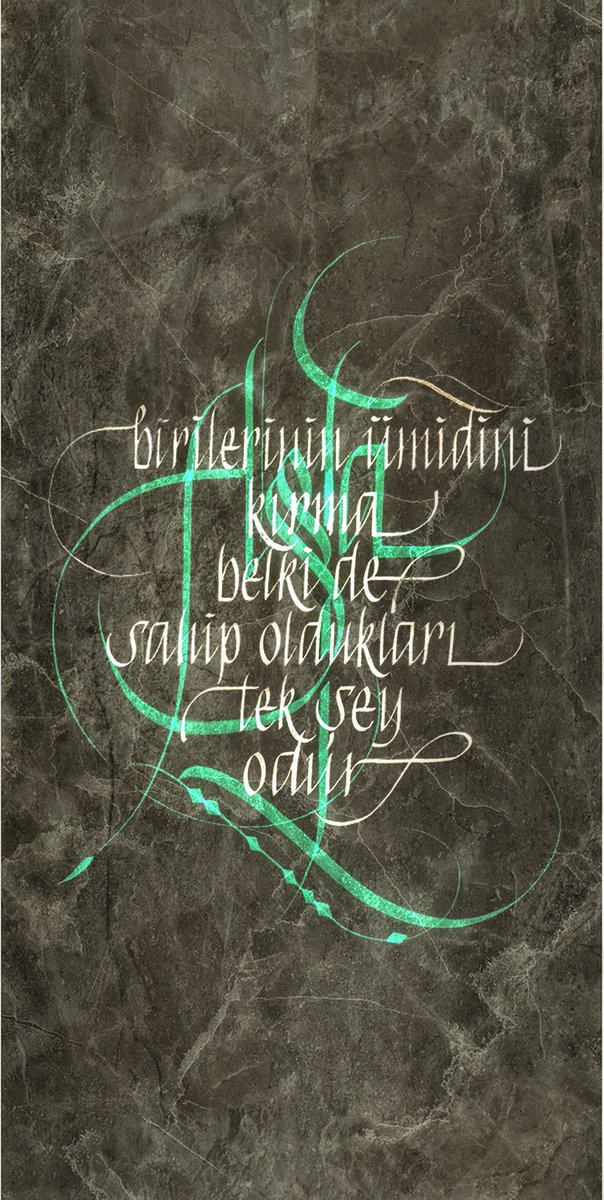 birilerinin ümidini
kırma
belki de
sahip oldukları
tek şey
odur